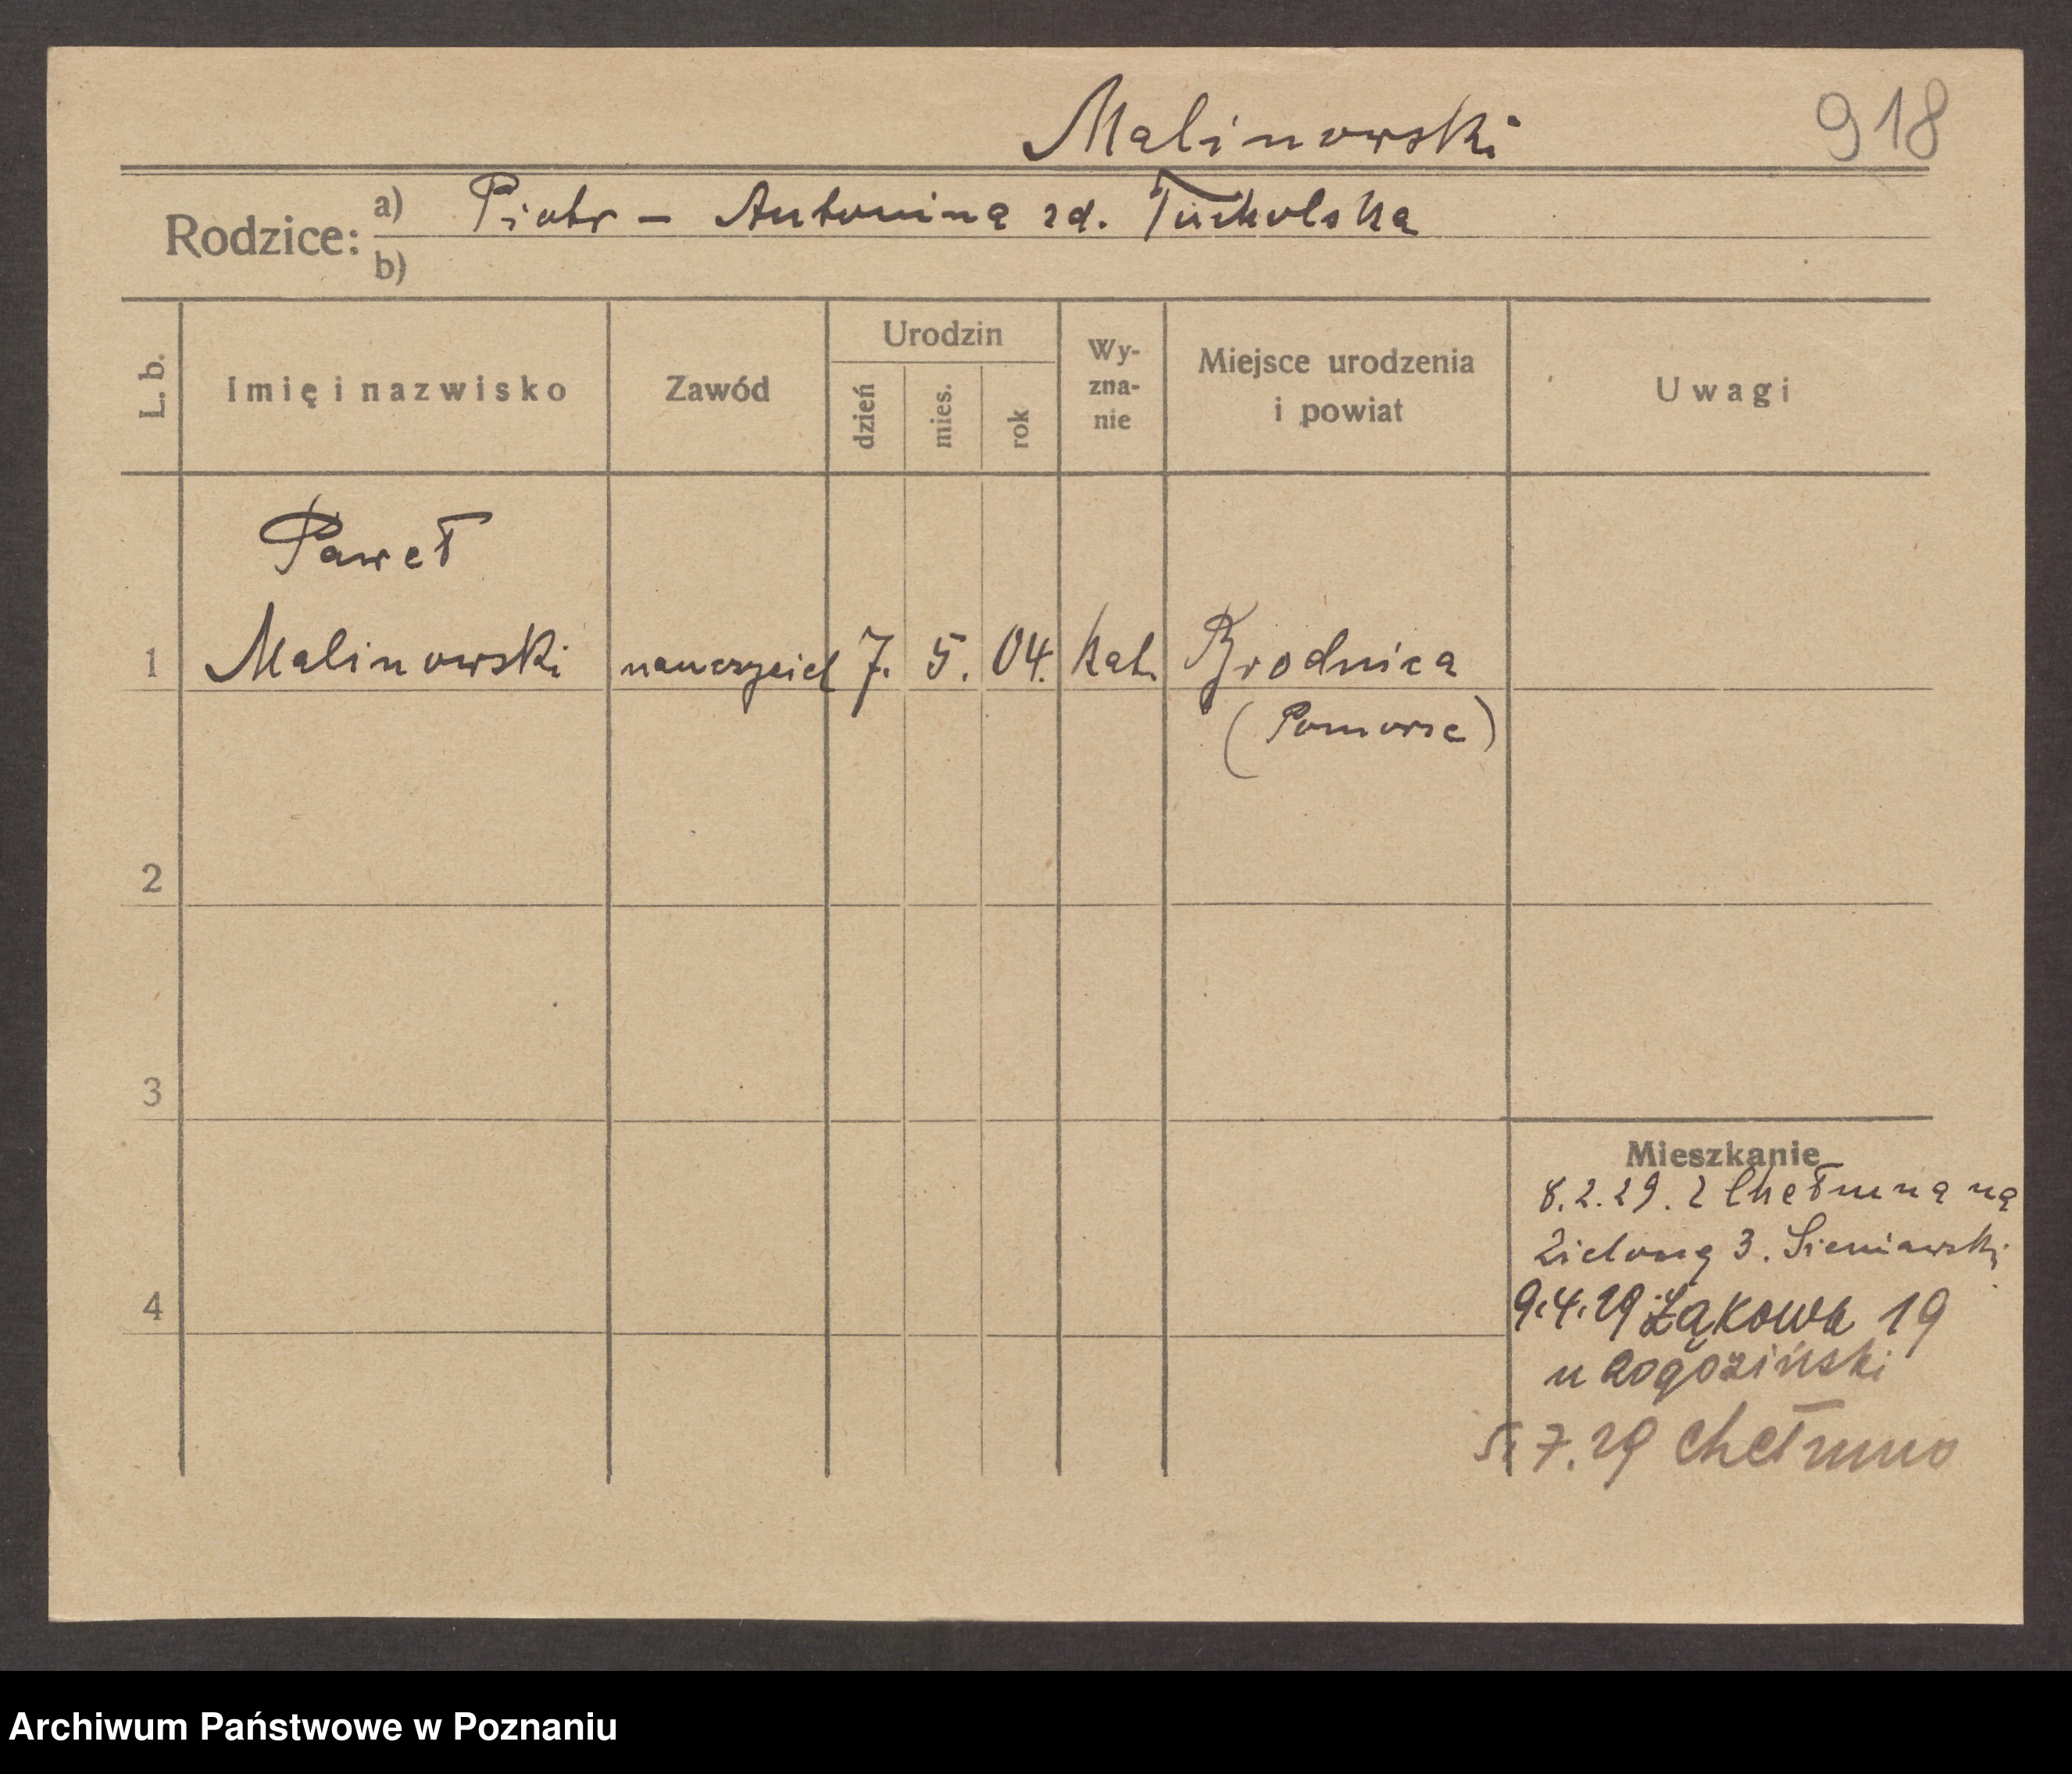 Malinowski
918
Rodzice:
a) Piotr – Antonina zd. Tucholska
b)
L. b.
Imię i nazwisko
Zawód
Urodzin
dzień
mies.
rok
Wy-
zna-
nie
Miejsce urodzenia
i powiat
Uwagi
Paweł
1 Malinowski nauczyciel 7. 5. 04. kat. Brodnica
(Pomorze)
2
3
4
Mieszkanie
8.2.29. z Chełmna na
Zieloną 3. Sieniawski
9.4.29 Łąkowa 19
u Rogoziński
5.7.29 Chełmno
Archiwum Państwowe w Poznaniu